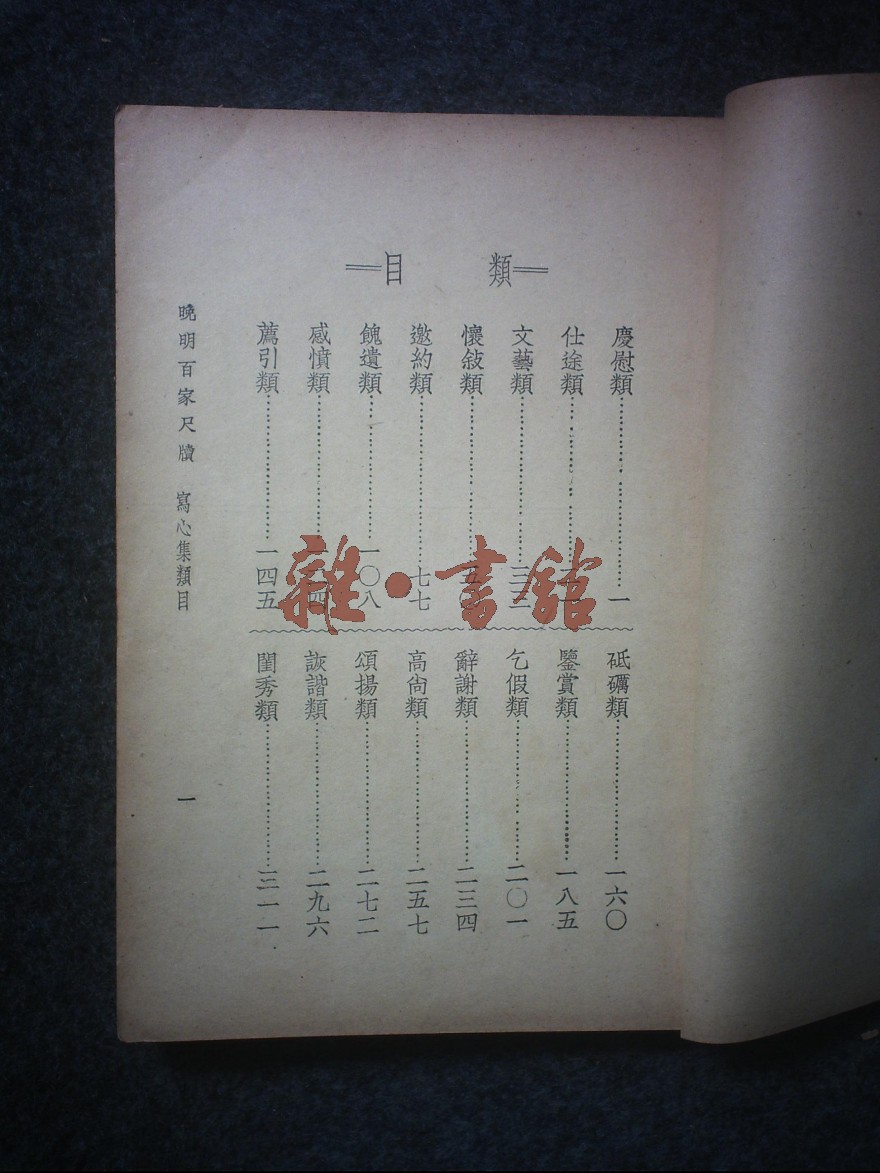 類目
慶慰類 一
仕途類
文藝類
懷敍類
邀約類 七七
餽遺類 一〇八
感憤類
薦引類 一四五
砥礪類 一六〇
鑒賞類 一八五
乞假類 二〇一
辭謝類 二三四
高尙類 二五七
頌揚類 二七二
詼諧類 二九六
閨秀類 三一一
晚明百家尺牘 寫心集類目
一
雜·書館